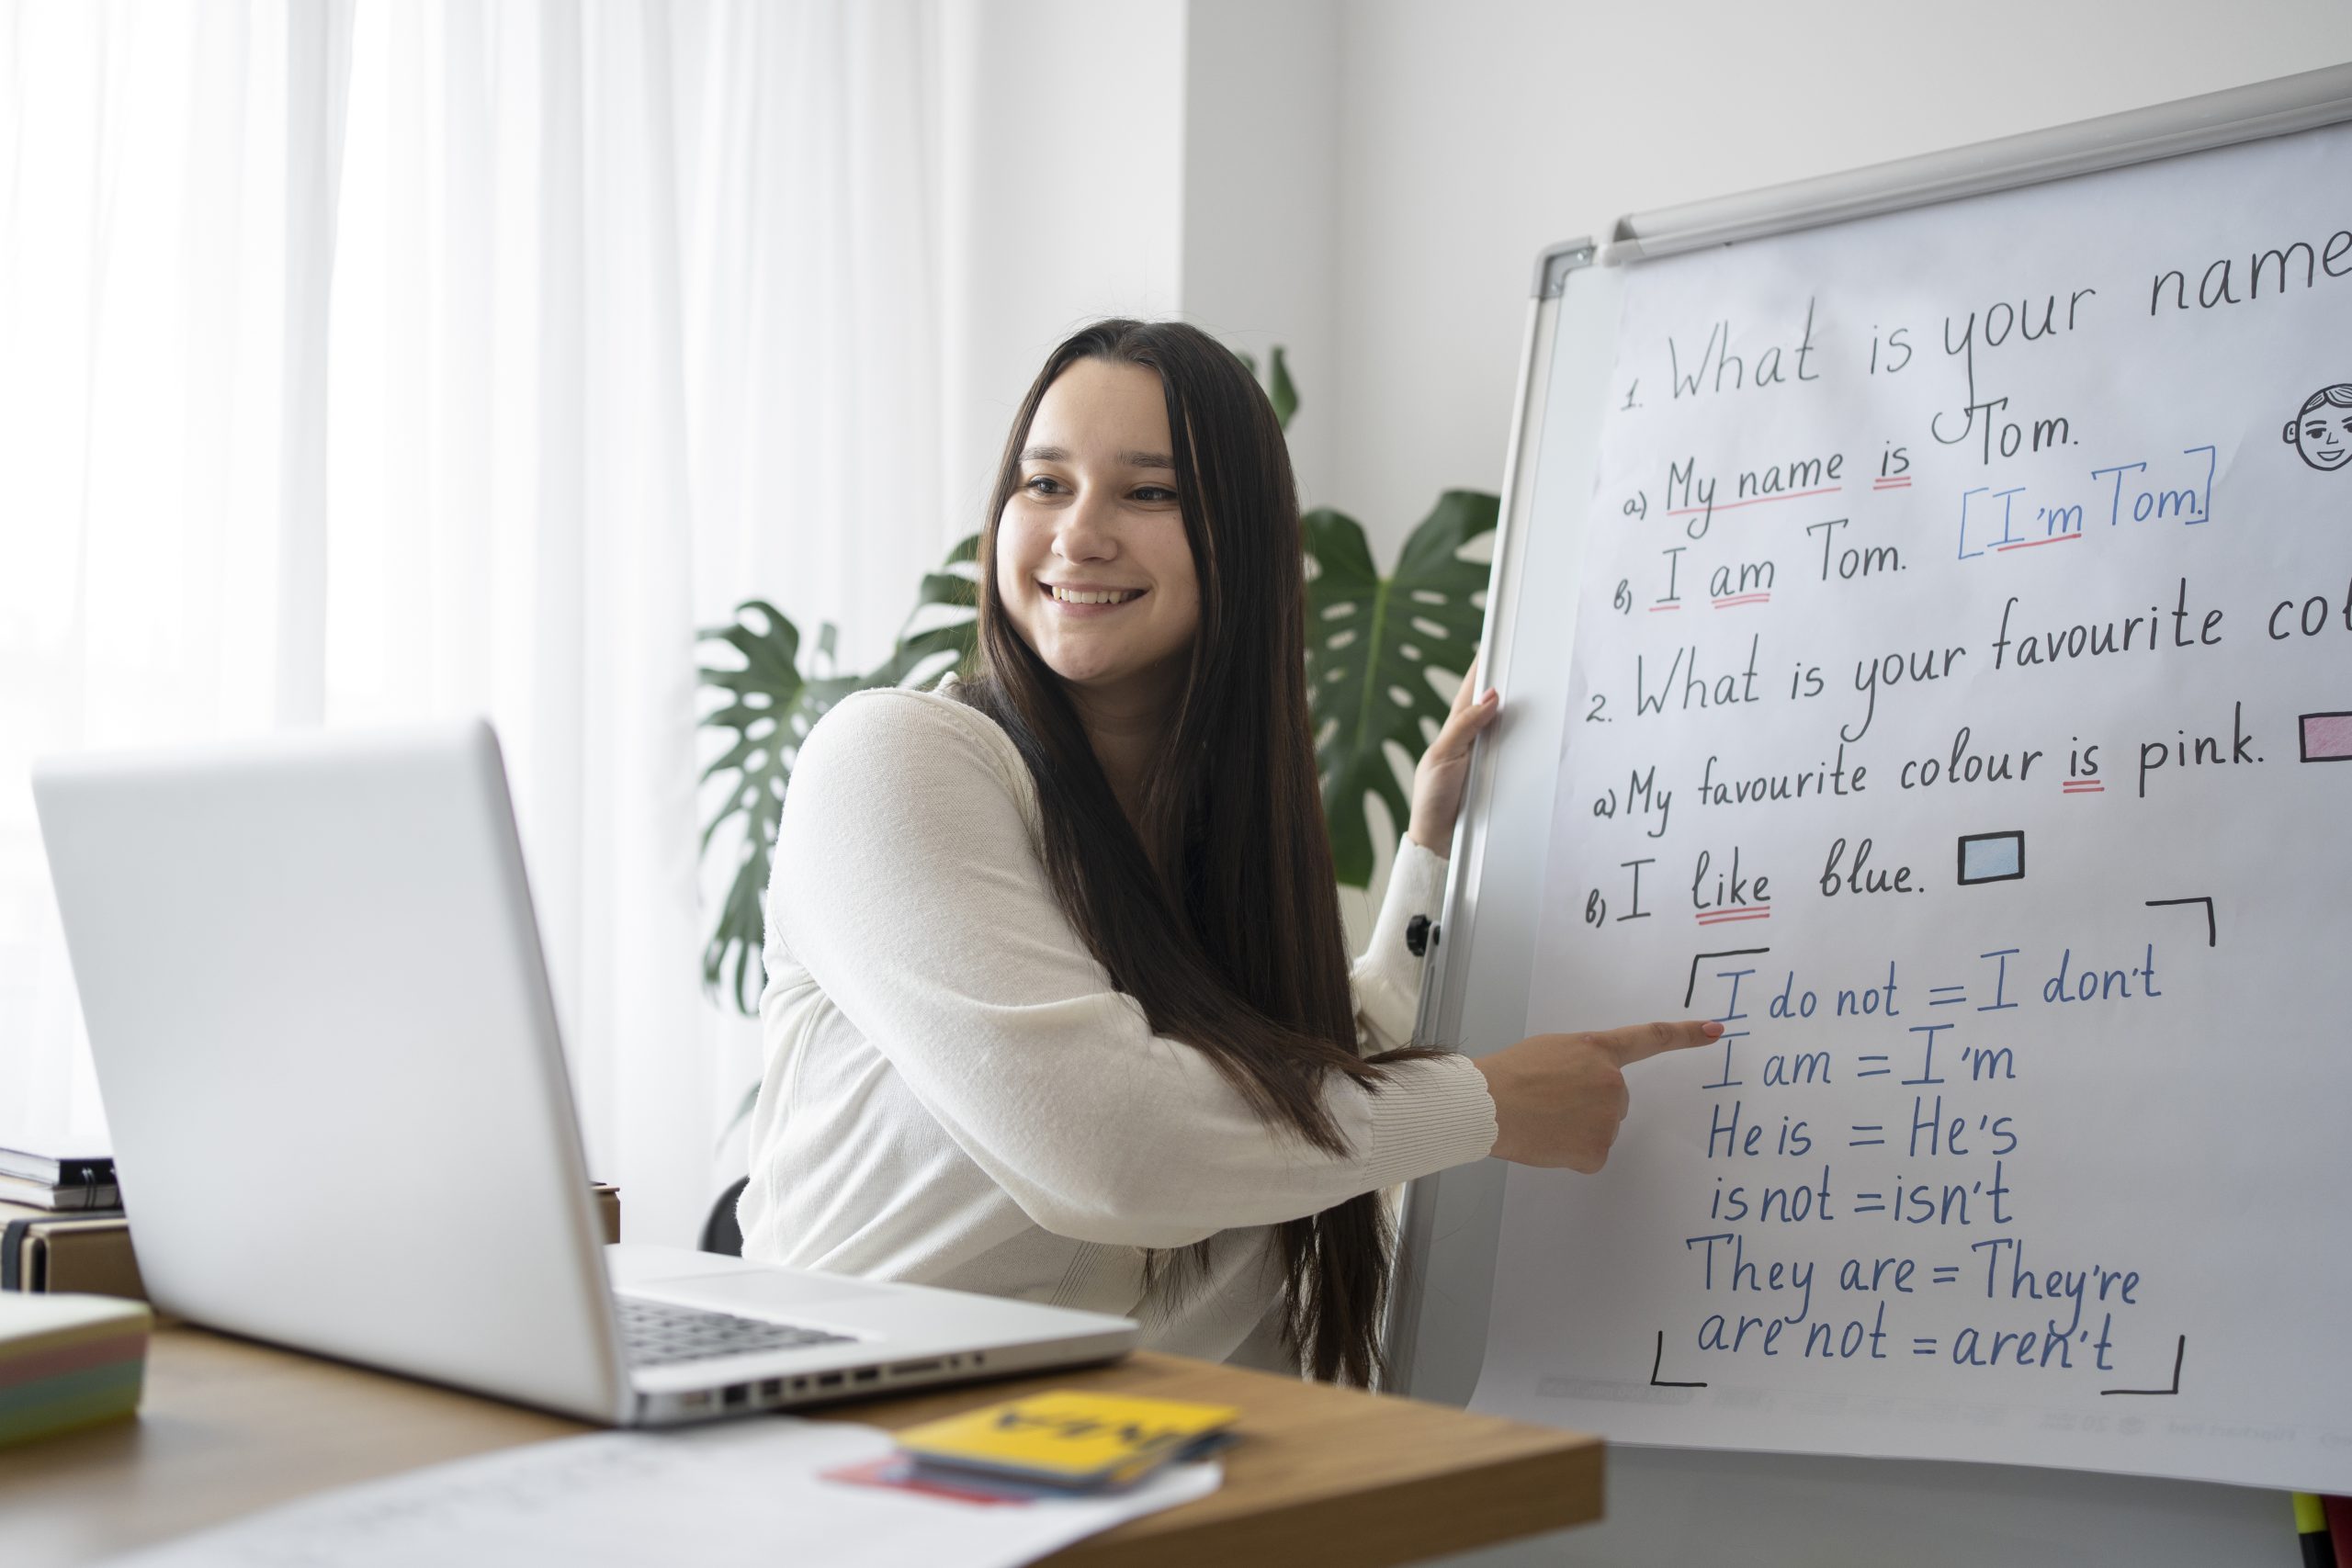 1. What is your name
a) My name is Tom.
b) I am Tom. [I'm Tom.]
2. What is your favourite
a) My favourite colour is pink.
b) I like blue.
I do not = I don't
I am = I'm
He is = He's
is not = isn't
They are = They're
are not = aren't